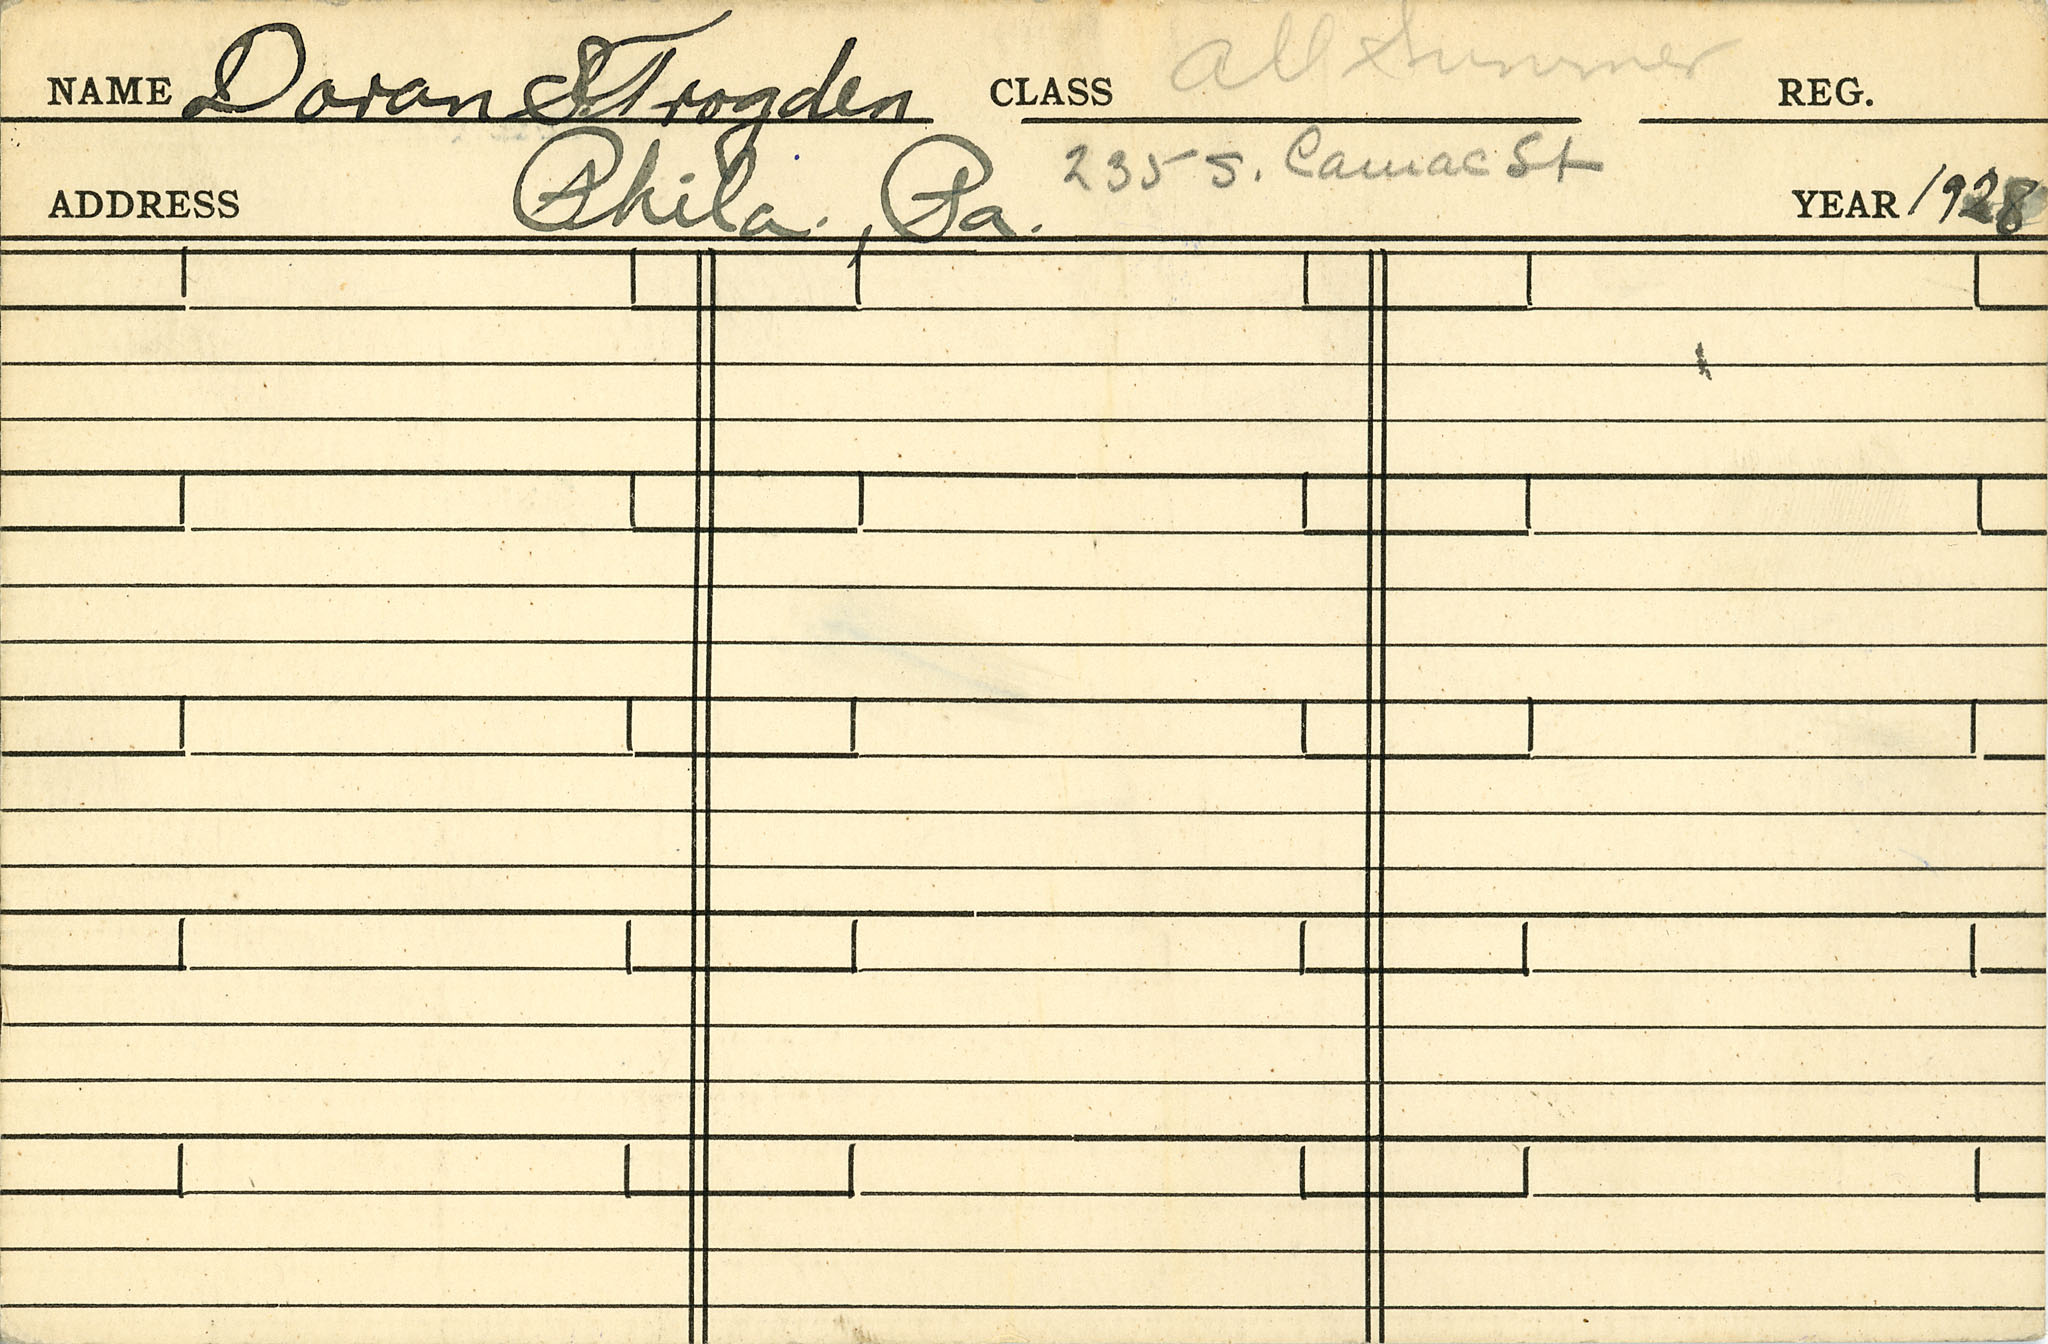 NAME Doran S. Trogden CLASS All Summer REG.
235 S. Camac St
ADDRESS Phila., Pa. YEAR 1928